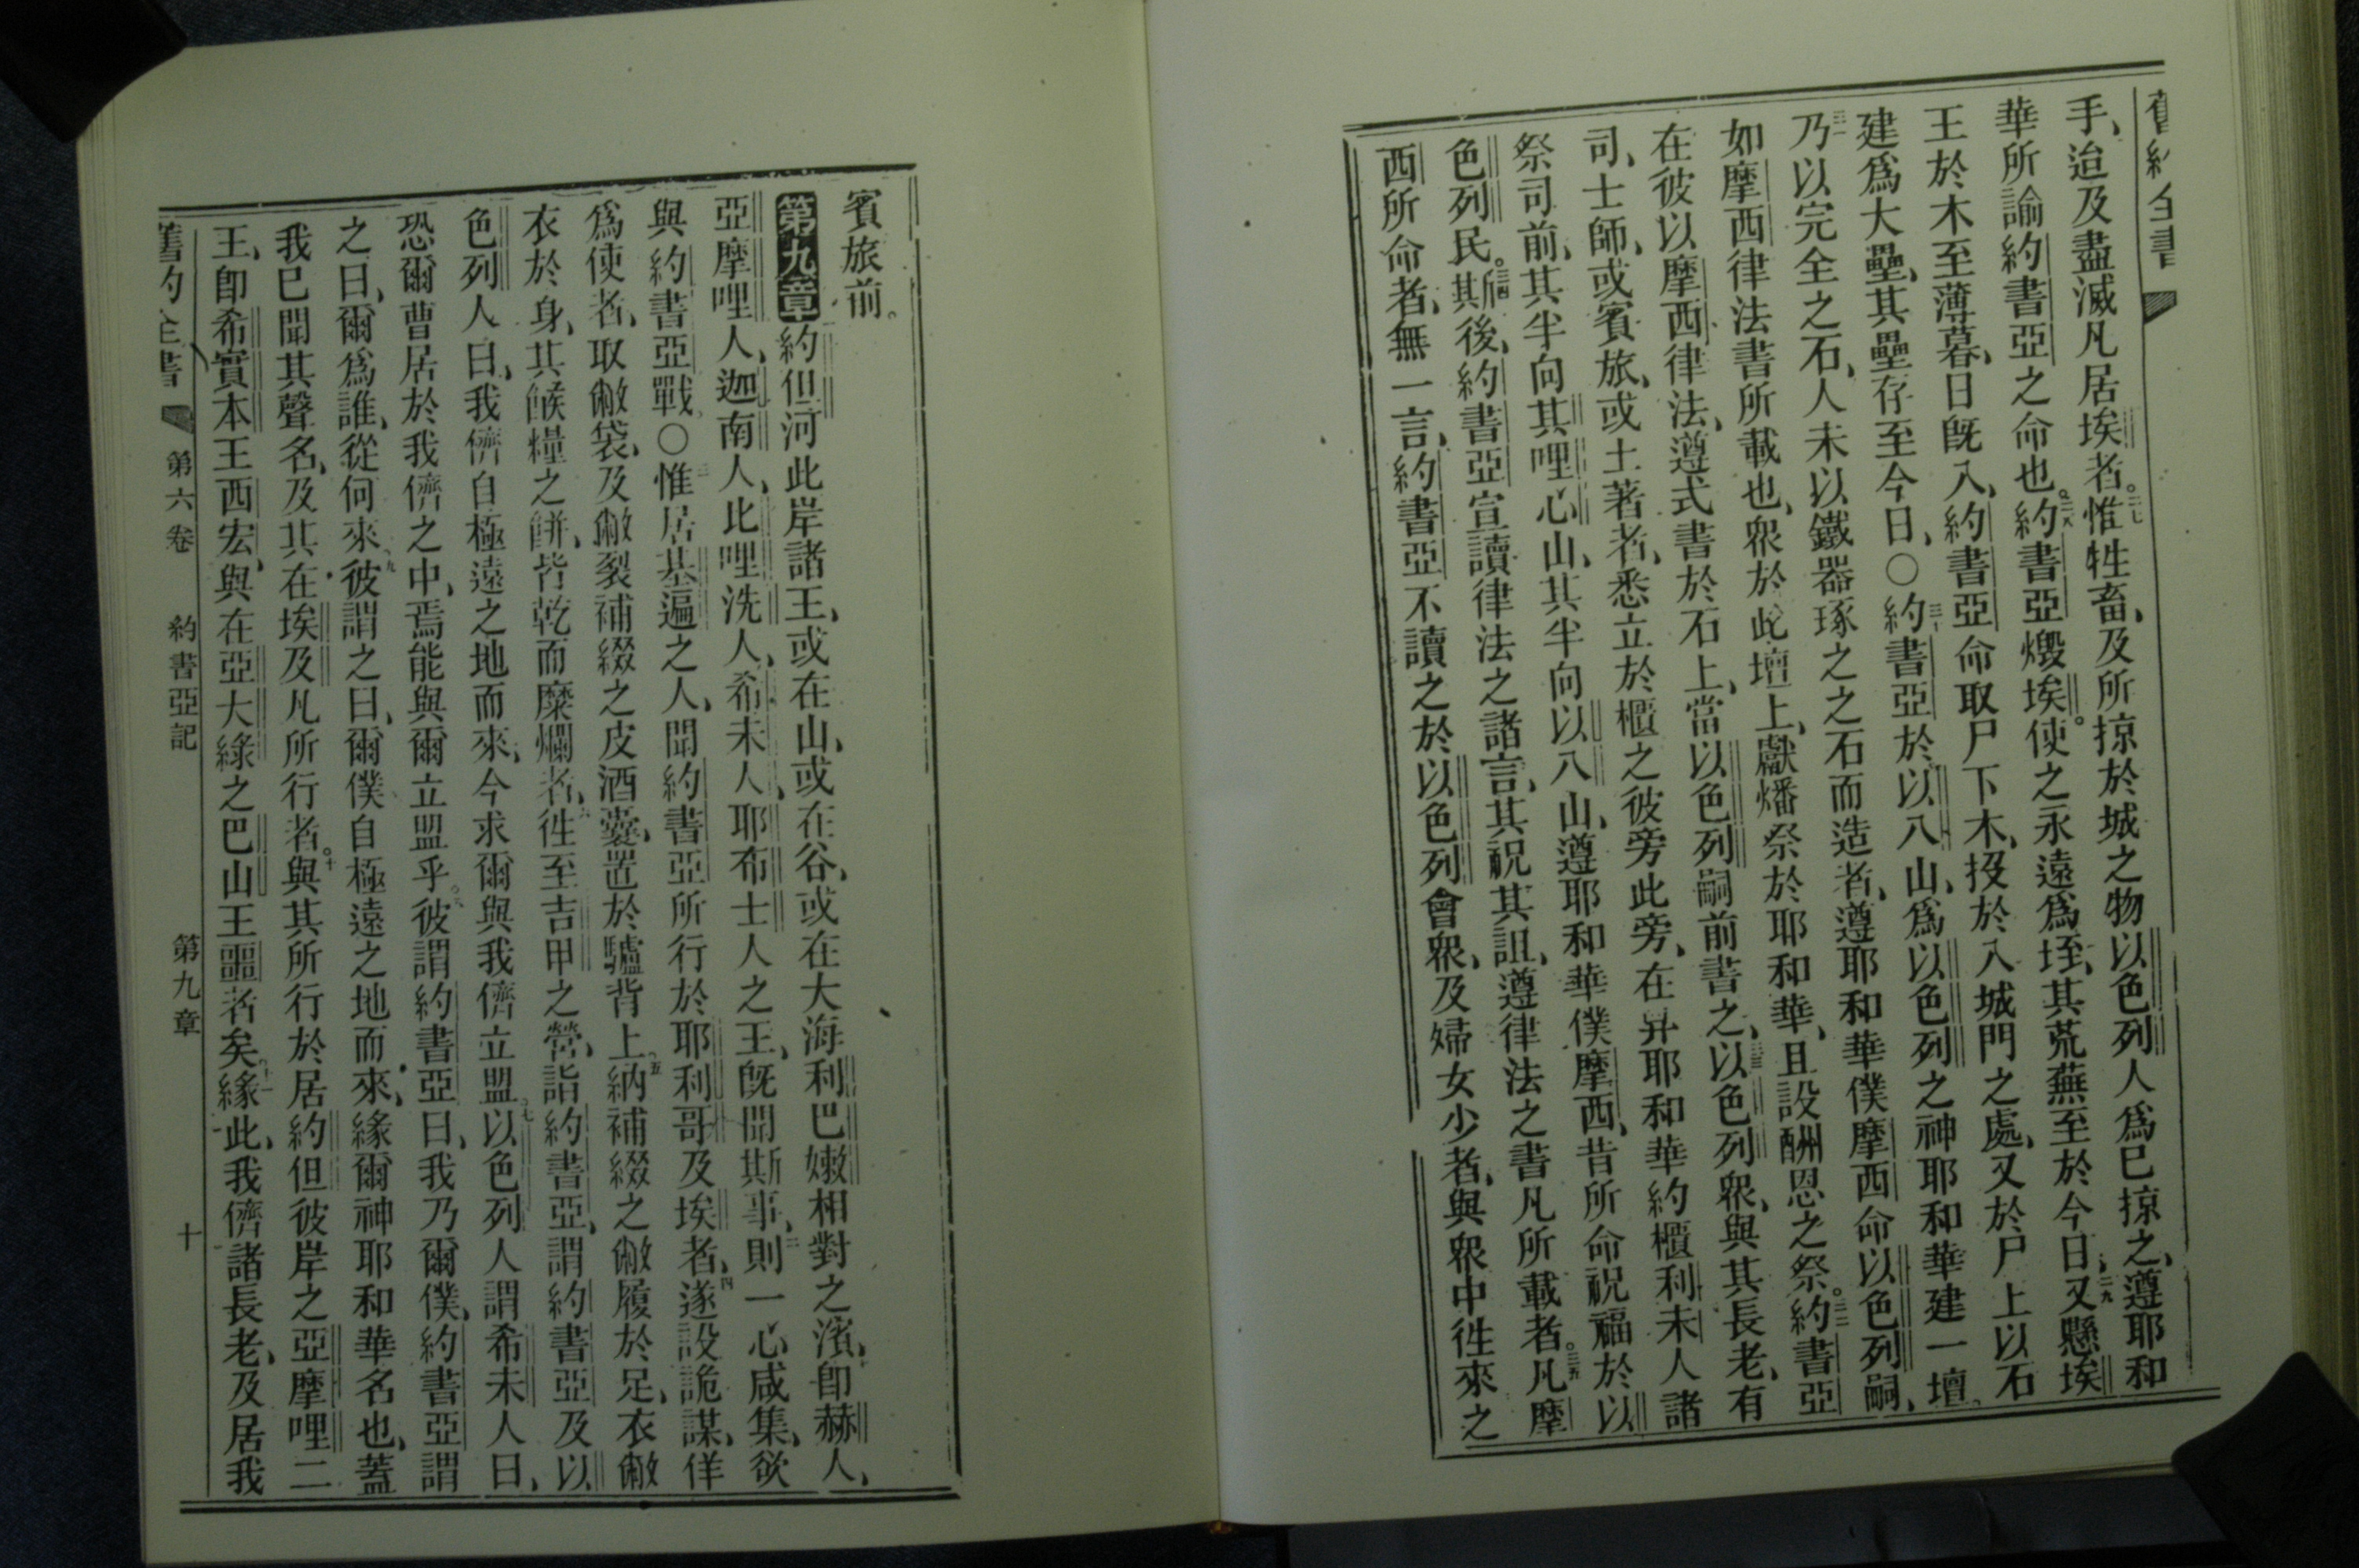 舊約全書
手、迨及盡滅凡居埃者。二七惟牲畜、及所掠於城之物以色列人爲已掠之、遵耶和
華所諭約書亞之命也。二八約書亞燬埃。使之永遠爲垤、其荒蕪至於今日、二九又懸埃
王於木至薄暮、日旣入、約書亞命取尸下木、投於入城門之處、又於尸上以石
建爲大壘、其壘存至今日、〇三十約書亞於以八山、爲以色列之神耶和華建一壇。
三一乃以完全之石、人未以鐵器琢之之石而造者、遵耶和華僕摩西命以色列嗣、
如摩西律法書所載也、衆於此壇上、獻燔祭於耶和華、且設酬恩之祭。三二約書亞
在彼以摩西律法、遵式書於石上、當以色列嗣前書之、三三以色列衆、與其長老、有
司、士師、或賓旅、或土著者、悉立於櫃之彼旁此旁、在舁耶和華約櫃利未人諸
祭司前、其半向其哩心山、其半向以八山、遵耶和華僕摩西、昔所命祝福於以
色列民。三四斯後、約書亞宣讀律法之諸言、其祝其詛、遵律法之書凡所載者。三五凡摩
西所命者、無一言、約書亞不讀之於以色列會衆、及婦女少者、與衆中徃來之
賓旅前。
第九章 約但河此岸諸王、或在山、或在谷、或在大海利巴嫩相對之濱、卽赫人、
亞摩哩人、迦南人、比哩洗人、希未人、耶布士人之王、旣聞斯事、二則一心咸集、欲
與約書亞戰。〇三惟居基遍之人、聞約書亞所行於耶利哥及埃者、四遂設詭謀、佯
爲使者、取敝袋、及敝裂補綴之皮酒囊、置於驢背上、五納補綴之敝履於足、衣敝
衣於身、其餱糧之餅、皆乾而糜爛者、六徃至吉甲之營、詣約書亞、謂約書亞及以
色列人曰、我儕自極遠之地而來、今求爾與我儕立盟。七以色列人謂希未人曰、
恐爾曹居於我儕之中、焉能與爾立盟乎。八彼謂約書亞曰、我乃爾僕、約書亞謂
之曰、爾爲誰、從何來、九彼謂之曰、爾僕自極遠之地而來、緣爾神耶和華名也、蓋
我已聞其聲名、及其在埃及凡所行者。十與其所行於居約但彼岸之亞摩哩二
王、卽希實本王西宏、與在亞大綠之巴山王噩者矣。十一緣此、我儕諸長老、及居我
舊約全書 第六卷 約書亞記 第九章 十